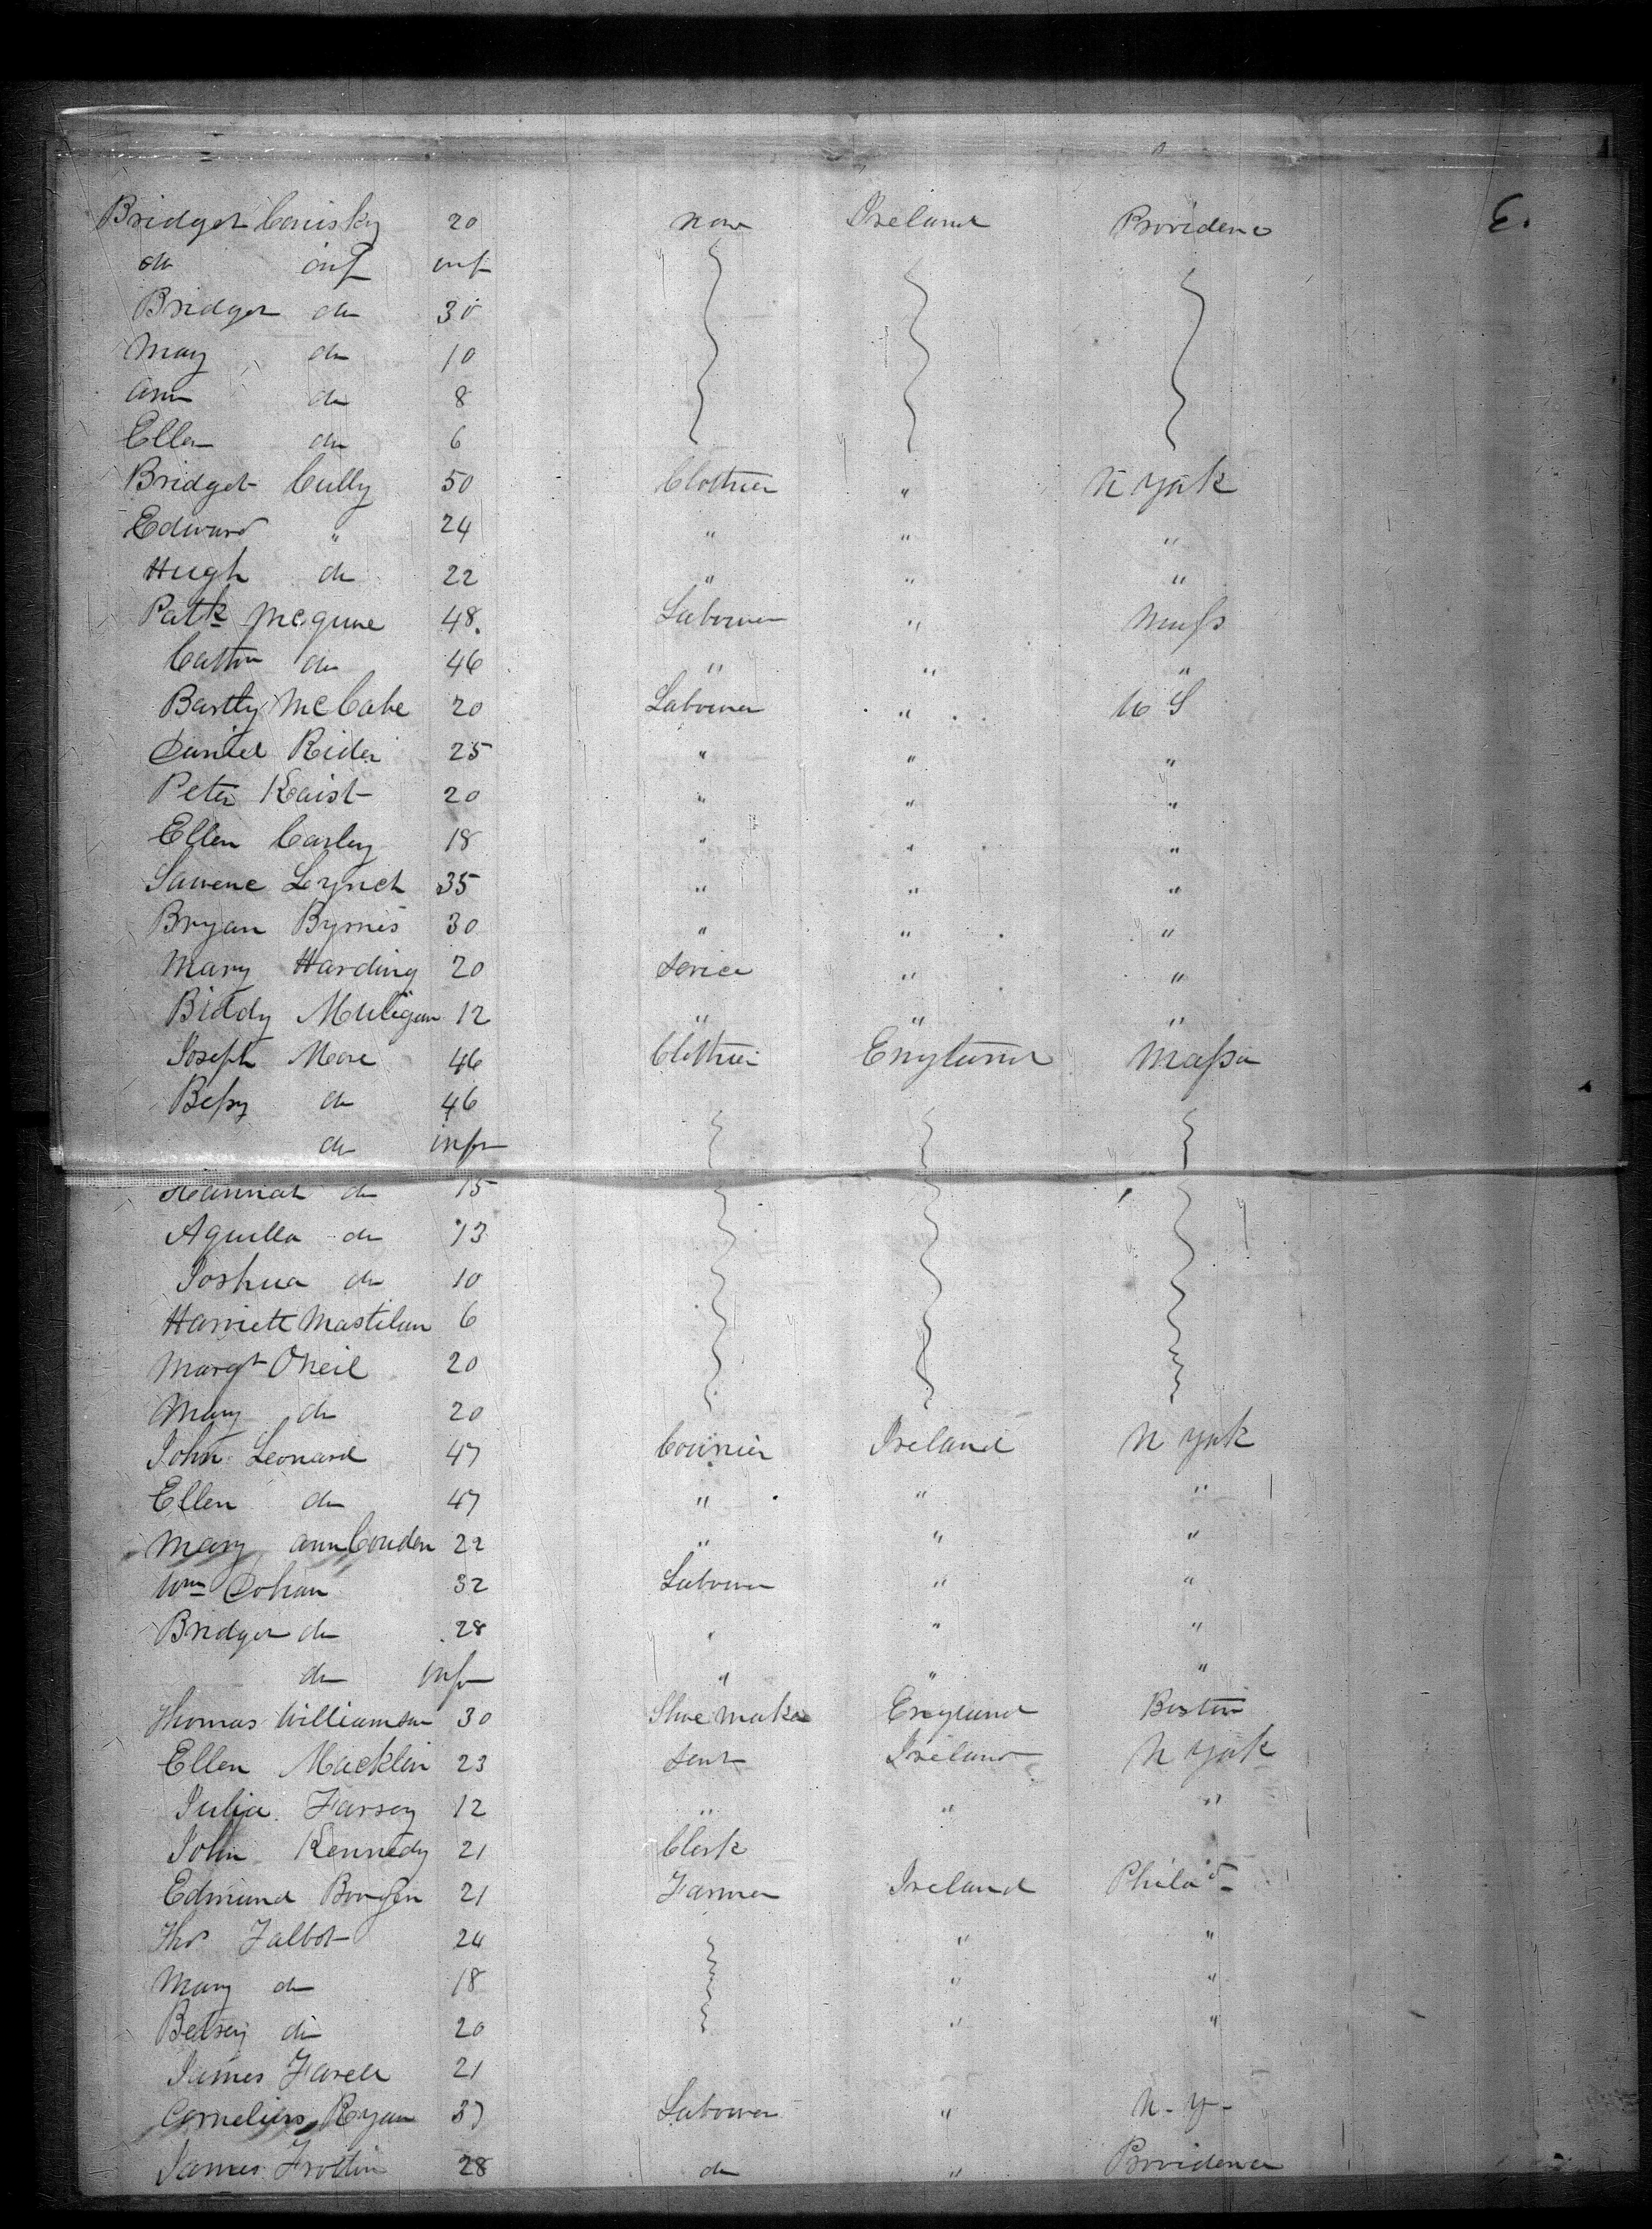 Bridget Conisky 20 none Ireland Providence E.
do inf inf
Bridget do 30
Mary do 10
Ann do 8
Ellen do 6
Bridget Cully 50 Clothier " N York
Edward " 24 " " "
Hugh do 22 " " "
Patk McGuue 48. Labourer " Mass
Cathn do 46 " " "
Bartly McCabe 20 Labourer " U S
Daniel Rider 25 " " "
Peter 20 " " "
Ellen Carley 18 " " "
Lawence Leynch 35 " " "
Bryan Byrnes 30 " " "
Mary Harding 20 Service " "
Biddy Muligan 12 " " "
Joseph More 46 Clothier England Massa
Bessy do 46
do inft
Hannah do 15
Aquilla do 13
Joshua do 10
Harriett 6
Margt ONeil 20
Mary do 20
John Leonard 47 Ireland N York
Ellen do 47 " " "
Mary Ann Couden 22 " " "
Wm Dohan 32 Labourer " "
Bridget do 28 " " "
do inft " " "
Thomas Williamson 30 Shoe Maker England Boston
Ellen Macklin 23 Sevt Ireland N York
Julia Farsey 12 " " "
John Kennedy 21 Clerk
Edmund 21 Farmer Ireland Philad
Thos Talbot 24 " "
Mary do 18 " "
Betsey do 20 " "
James Farell 21
Cornelius Ryan 37 Labourer " N-Y-
James 28 do " Providence